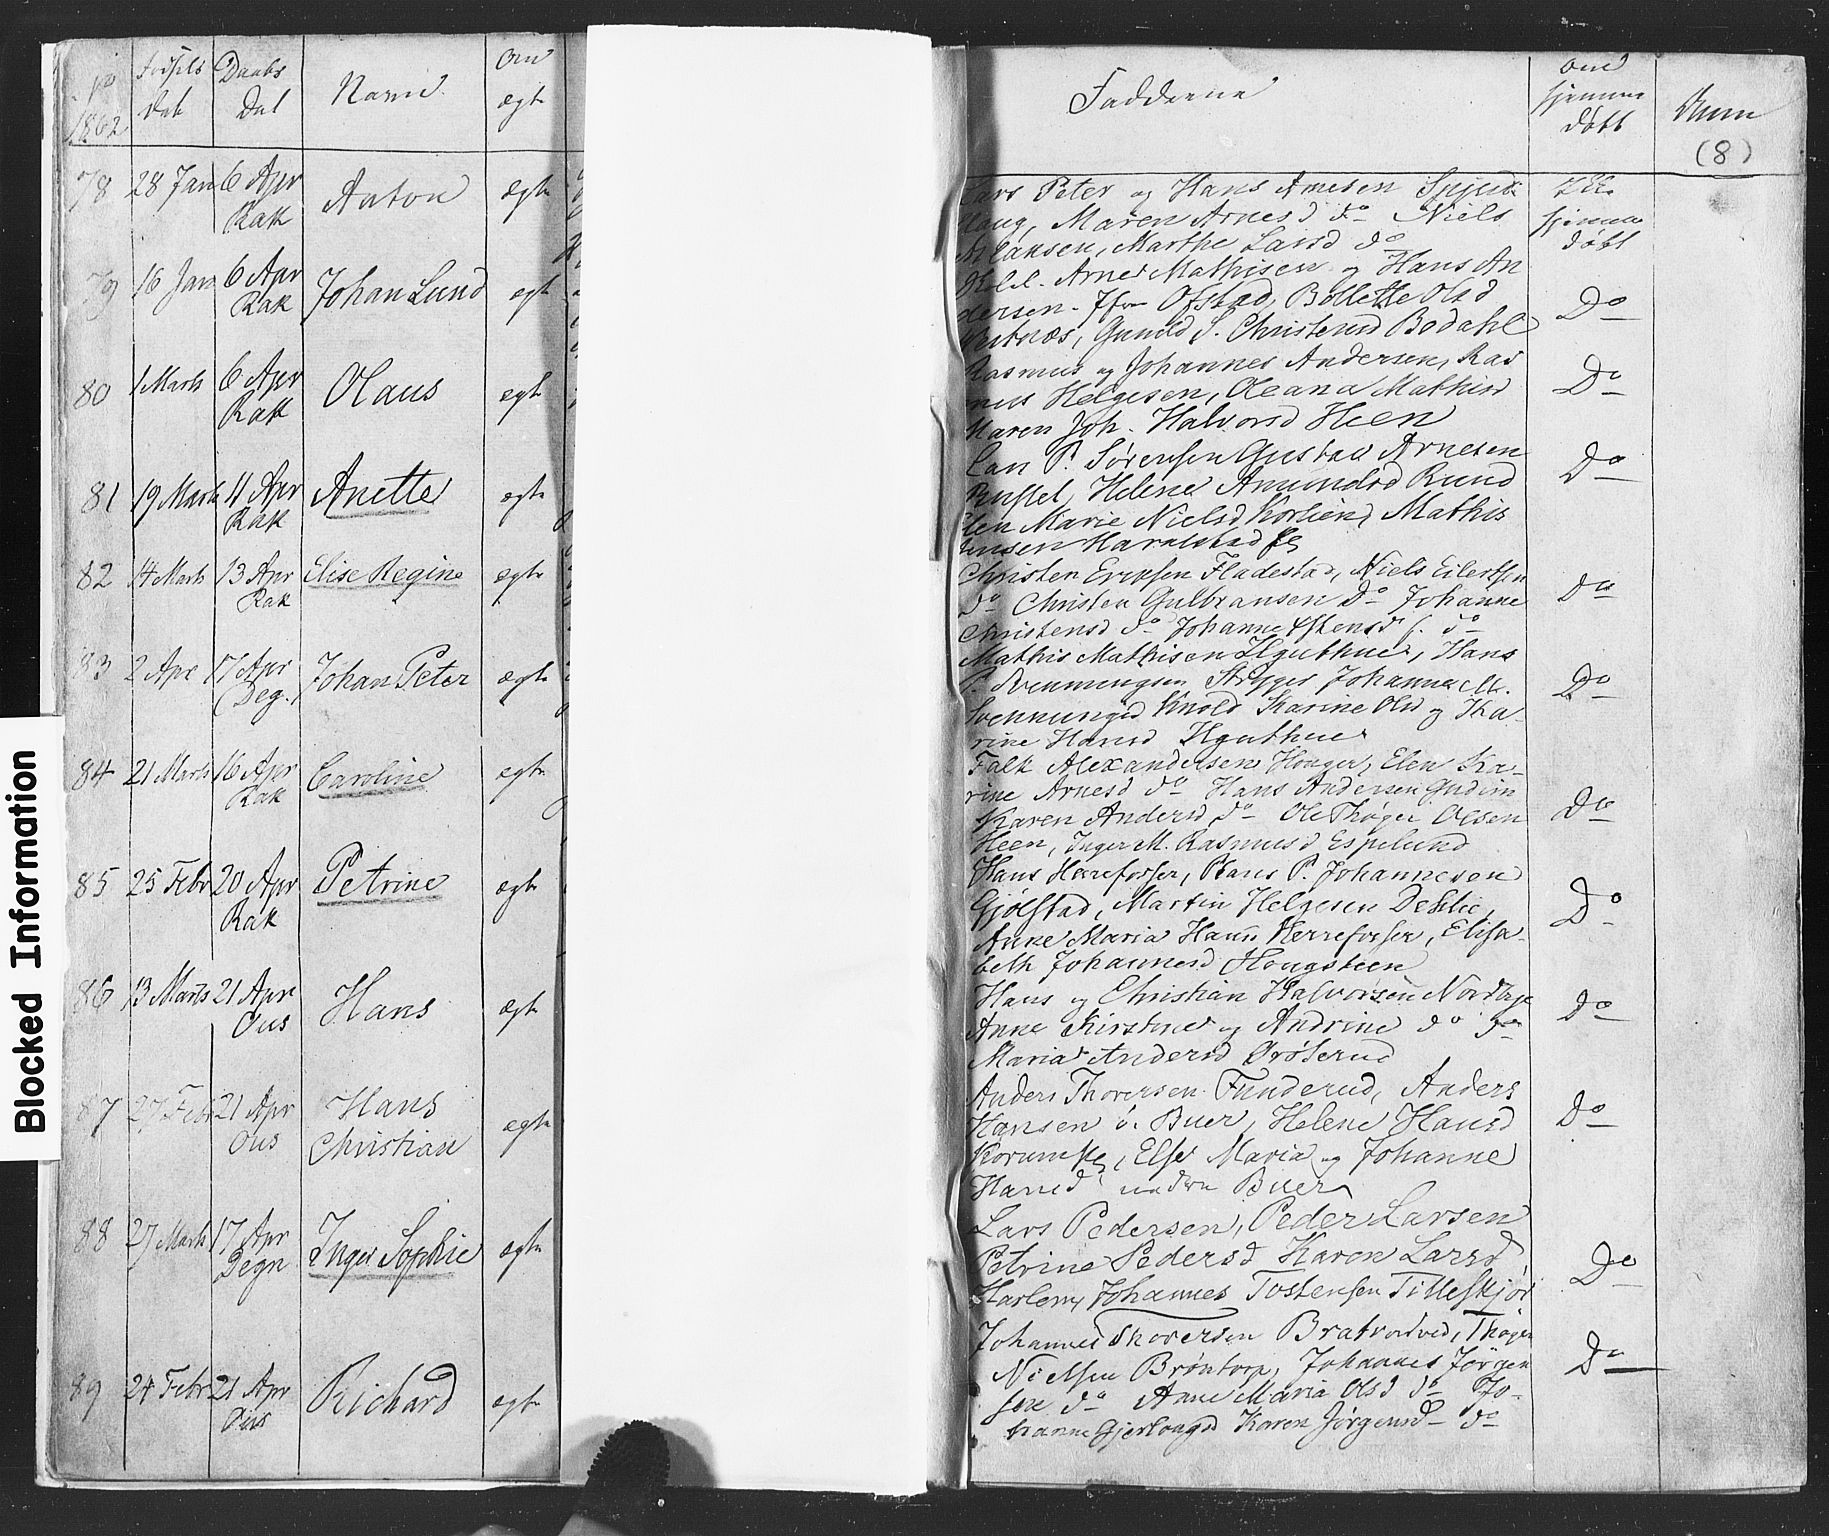 Blocked Information
No 1862
Fødsels Dat
Daabs Dat
Navn
Om ægte
78 28 Jan 6 Apr Rak Anton ægte
79 16 Jan 6 Apr Rak Johan Lund ægte
80 1 Marts 6 Apr Rak Olaus ægte
81 19 Marts 4 Apr Rak Anette ægte
82 14 Marts 13 Apr Rak Elise Regine ægte
83 2 Apr 17 Apr Deg. Johan Peter ægte
84 21 Marts 16 Apr Rak Caroline ægte
85 25 Febr 20 Apr Rak Petrine ægte
86 13 Marts 21 Apr Ous Hans ægte
87 27 Febr 21 Apr Ous Hans Christian ægte
88 27 Marts 17 Apr Degn Inger Sophie ægte
89 24 Febr 21 Apr Ous Richard ægte
Fadderne
om hjemme døbt
Anm
(8)
Lars Peter og Hans Arnesen
Maren Arnesd do Niels
Marthe Larsd do
hjemme døbt
Arne Mathisen og Hans An
dersen Ofstad, Bollette Olsd
Gunild S. Christensd Bodahl
Do
Rasmus og Johannes Andersen, Ras
mus Helgesen, Oleana Mathisd
Maren Joh. Halvorsd Heen
Do
P. Sørensen Gustav Arnesen
Helene Amundsd Rund
Elen Marie Nielsd Mathis
Jensen Haralstad
Do
Christen Fladestad, Niels Eilertsen
Do Christen Gulbransen Do Johanne
Christensd do Johanne do
Do
Mathis Mathisen Hans
P. Svenningsen Johanne M.
Svenningsd Karine Olsd og Ka-
rine Hansd
Do
Falk Alexandersen Elen Ka-
rine Arnesd do Hans Andersen Gudim
Karen Andersd do Ole Thøger Olsen
Heen, Inger M. Rasmusd Espelund
Do
Hans Herrefosser, Hans P. Johannesen
Gjølstad, Martin Helgesen
Anne Maria Hansd Herrefosser, Elisa-
beth Johannesd Hougsteen
Do
Hans og Christian Halvorsen
Anne Kirstine og Andrine do do
Maria Andersd
Do
Anders Thoresen Funderud, Anders
Hansen ø. Buer, Helene Hansd
Else Maria og Johanne
Hansd nedre Buer
Do
Lars Pedersen, Peder Larsen
Petrine Pedersd Karen Larsd
Harlem, Johannes Tostensen
Do
Johannes Thoresen Thøger
Nielsen Brøntorp, Johannes Jørgen
sen do Anne Maria Olsd do Jo-
hanne Karen Jørgensd do
Do